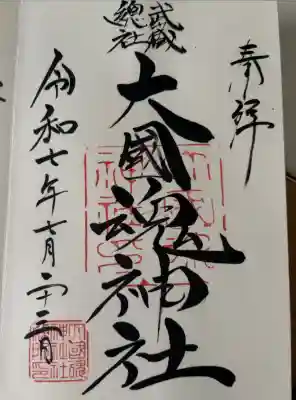 奉拝
武蔵
總社
大國魂神社
令和七年七月二十三日